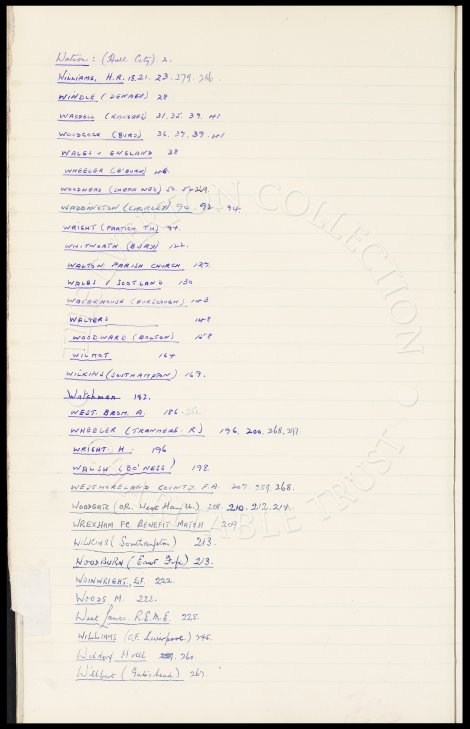 Watson: (Hull City) 2.
WILLIAMS, H.R. 18.21. 23. 279. 286
WINDLE (DENABY) 28
WADDELL (RANGERS) 31. 35. 39. 41
WOODCOCK (BURY) 36. 37. 39. 41
WALES v ENGLAND 38
WHEELER (B'BURN) 46.
WOODHEAD (CHEAR NES) 50. 269.
WADDINGTON (CHORLEY) 90. 92. 94.
WRIGHT (PARTICK TH) 94.
WHITWORTH (BURY) 122.
WALTON PARISH CHURCH 127.
WALES v SCOTLAND 130
WATERHOUSE (BURSCOUGH) 143
WALTERS 148
WOODWARD (BOLTON) 158
WILMOT 164
WILKINS (SOUTHAMPTON) 169.
Watchman 182.
WEST BROM. A. 186. 251.
WHEELER (TRANMERE R) 196. 200. 268. 297.
WRIGHT. H. 196
WALSH (BO'NESS) 198.
WESTMORELAND COUNTY F.A. 207. 259. 268.
WOODGATE (DR. West Ham U.) 208. 210. 212. 214.
WREXHAM FC BENEFIT MATCH 209
WILKINS (Southampton) 213.
WOODBURN (East Fife) 213.
WAINWRIGHT, 222.
WOODS M. 223.
West Lancs. R.E.M.E. 225.
WILLIAMS (C.F. Liverpool.) 245.
Hotel 260.
(Gateshead) 267
COLLECTION
TRUST